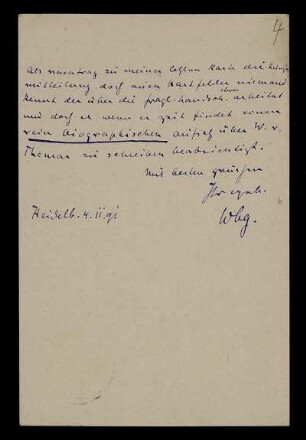 4
Als nachtrag zu meiner letzten karte die kurze
mitteilung, dass auch Hartfelder niemand
kennt der über die fragl. handsch. arbeitet
und dass er wenn er zeit findet einen
rein biographischen aufsatz über W. v.
Thomar zu schreiben beabsichtigt.
Mit besten grüssen
Ihr ergeb.
Wbg.
Heidelb. 4. II. 91